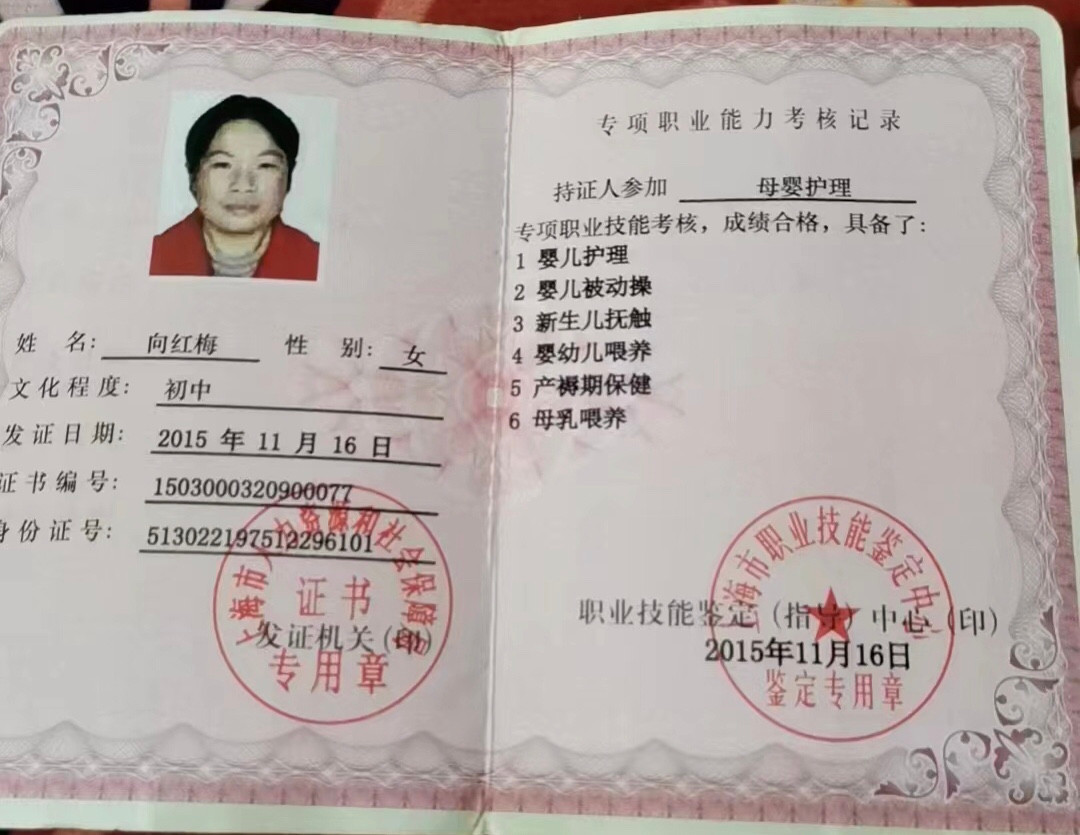 姓 名: 向红梅 性 别: 女
文化程度: 初中
发证日期: 2015 年 11 月 16 日
证书编号: 1503000320900077
身份证号: 513022197512296101
上海市人力资源和社会保障局
证书
发证机关(印)
专用章
专项职业能力考核记录
持证人参加 母婴护理
专项职业技能考核，成绩合格，具备了:
1 婴儿护理
2 婴儿被动操
3 新生儿抚触
4 婴幼儿喂养
5 产褥期保健
6 母乳喂养
上海市职业技能鉴定中心
职业技能鉴定(指导)中心(印)
2015年11月16日
鉴定专用章